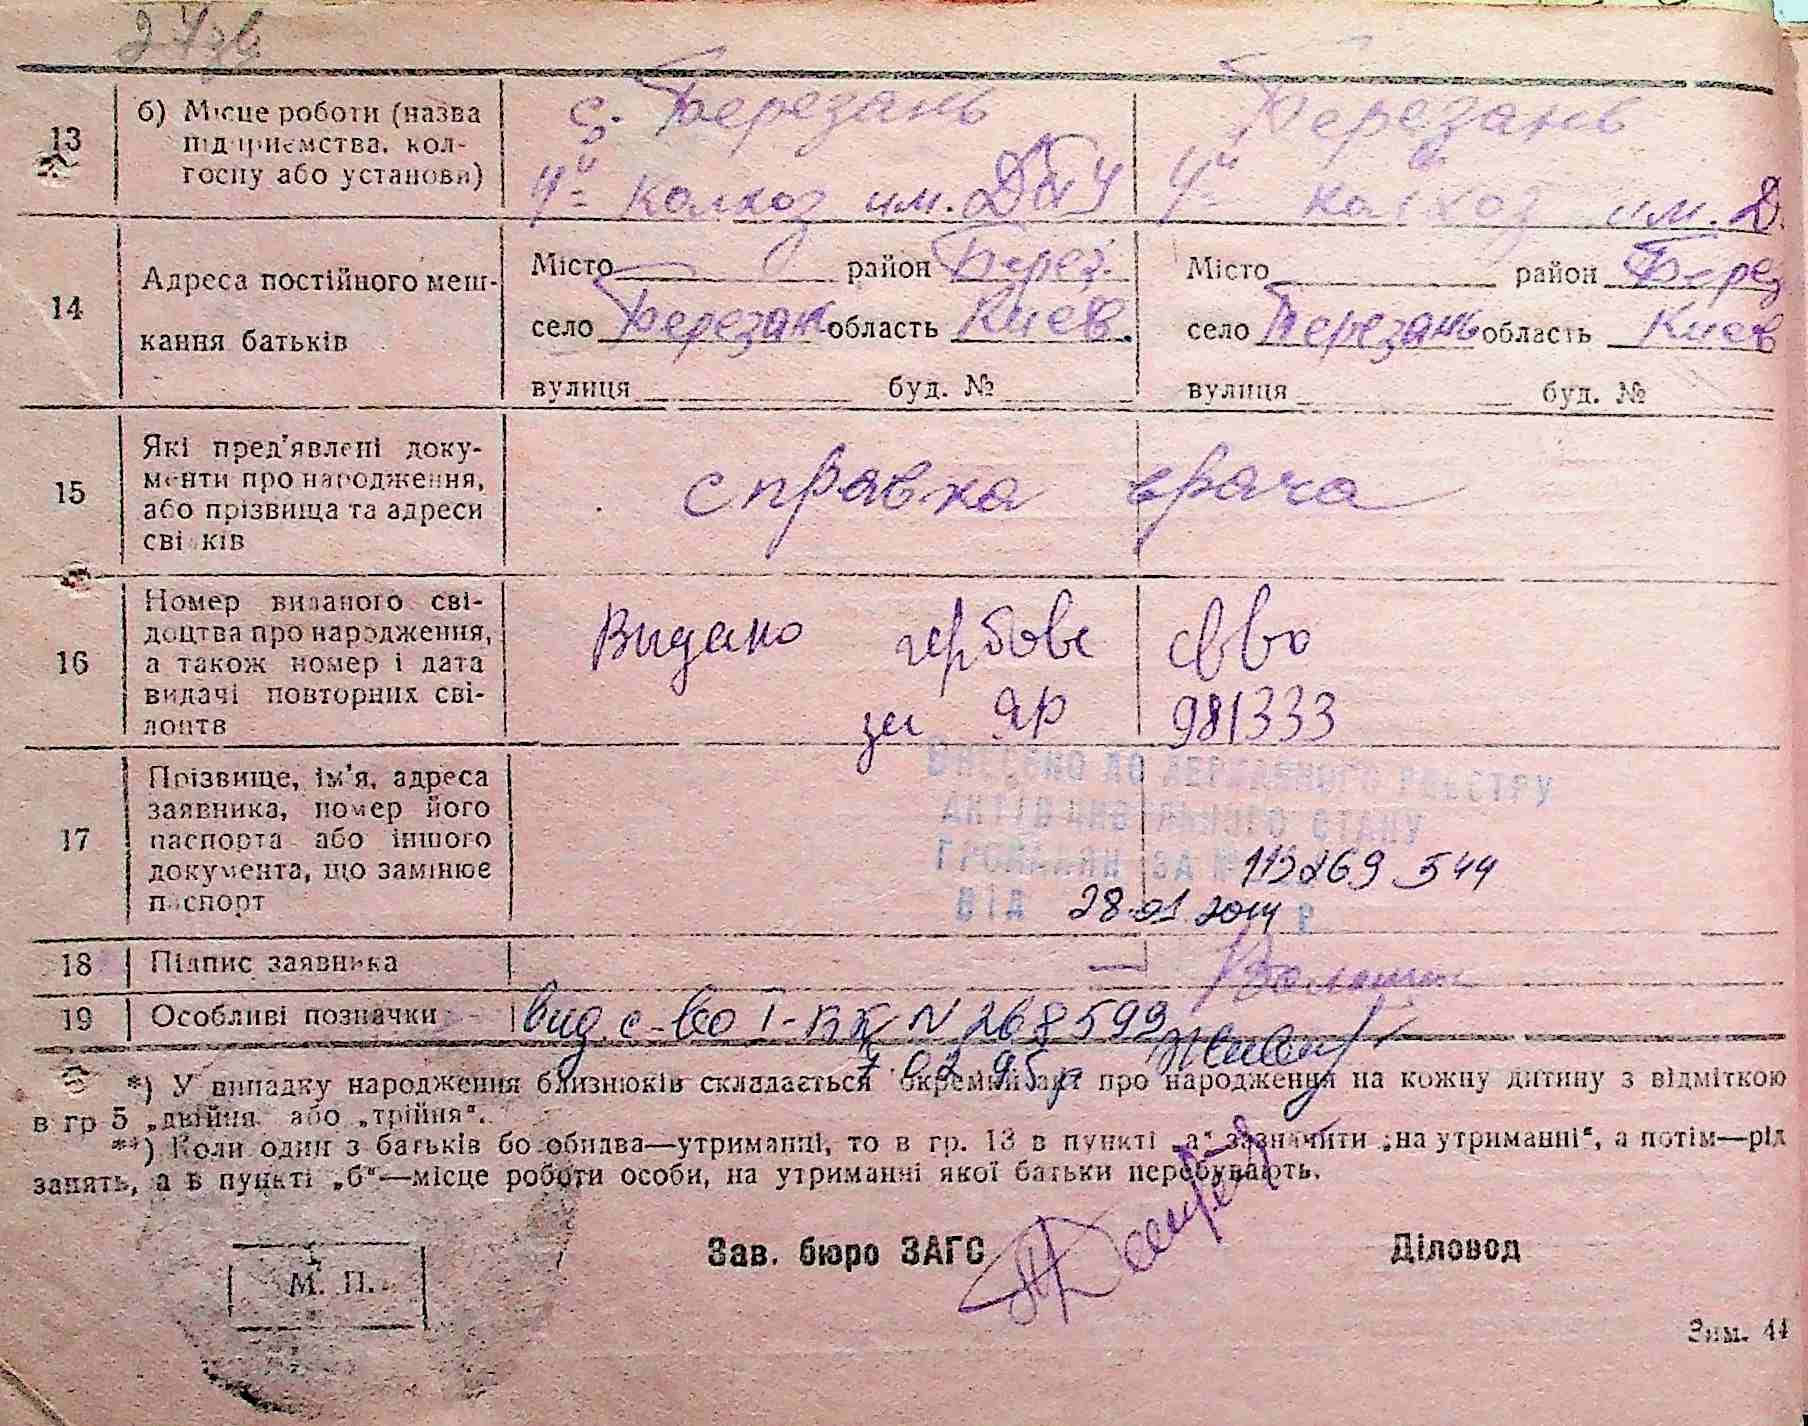 24зв
13
б) Місце роботи (назва
підприємства, кол-
госпу або установи)
с. Березань
4й колхоз им. ДПУ
Березань
4й колхоз им. Д.
14
Адреса постійного меш-
кання батьків
Місто район Берез.
село Березань область Киев.
вулиця буд. №
Місто район Берез
село Березань область Киев
вулиця буд. №
15
Які пред'явлені доку-
менти про народження,
або прізвища та адреси
свідків
справка врача
16
Номер виданого сві-
доцтва про народження,
а також номер і дата
видачі повторних сві-
доцтв
Видано гербове св во
за ЯР 981333
17
Прізвище, ім'я, адреса
заявника, номер його
паспорта або іншого
документа, що замінює
паспорт
ВНЕСЕНО ДО ДЕРЖАВНОГО РЕЄСТРУ
АКТІВ ЦИВІЛЬНОГО СТАНУ
ГРОМАДЯН ЗА № 113269 544
ВІД 28.01.2014 р
18
Підпис заявника
19
Особливі позначки
вид с-во I-БК N 268599
7.02.95р
*) У випадку народження близнюків складається окремий акт про народження на кожну дитину з відміткою
в гр 5 „двійня" або „трійня".
**) Коли один з батьків бо обидва—утриманці, то в гр. 13 в пункті „а" зазначити „на утриманні", а потім—рід
занять, а в пункті „б"—місце роботи особи, на утриманні якої батьки перебувають.
М. П.
Зав. бюро ЗАГС
Діловод
Зим. 44